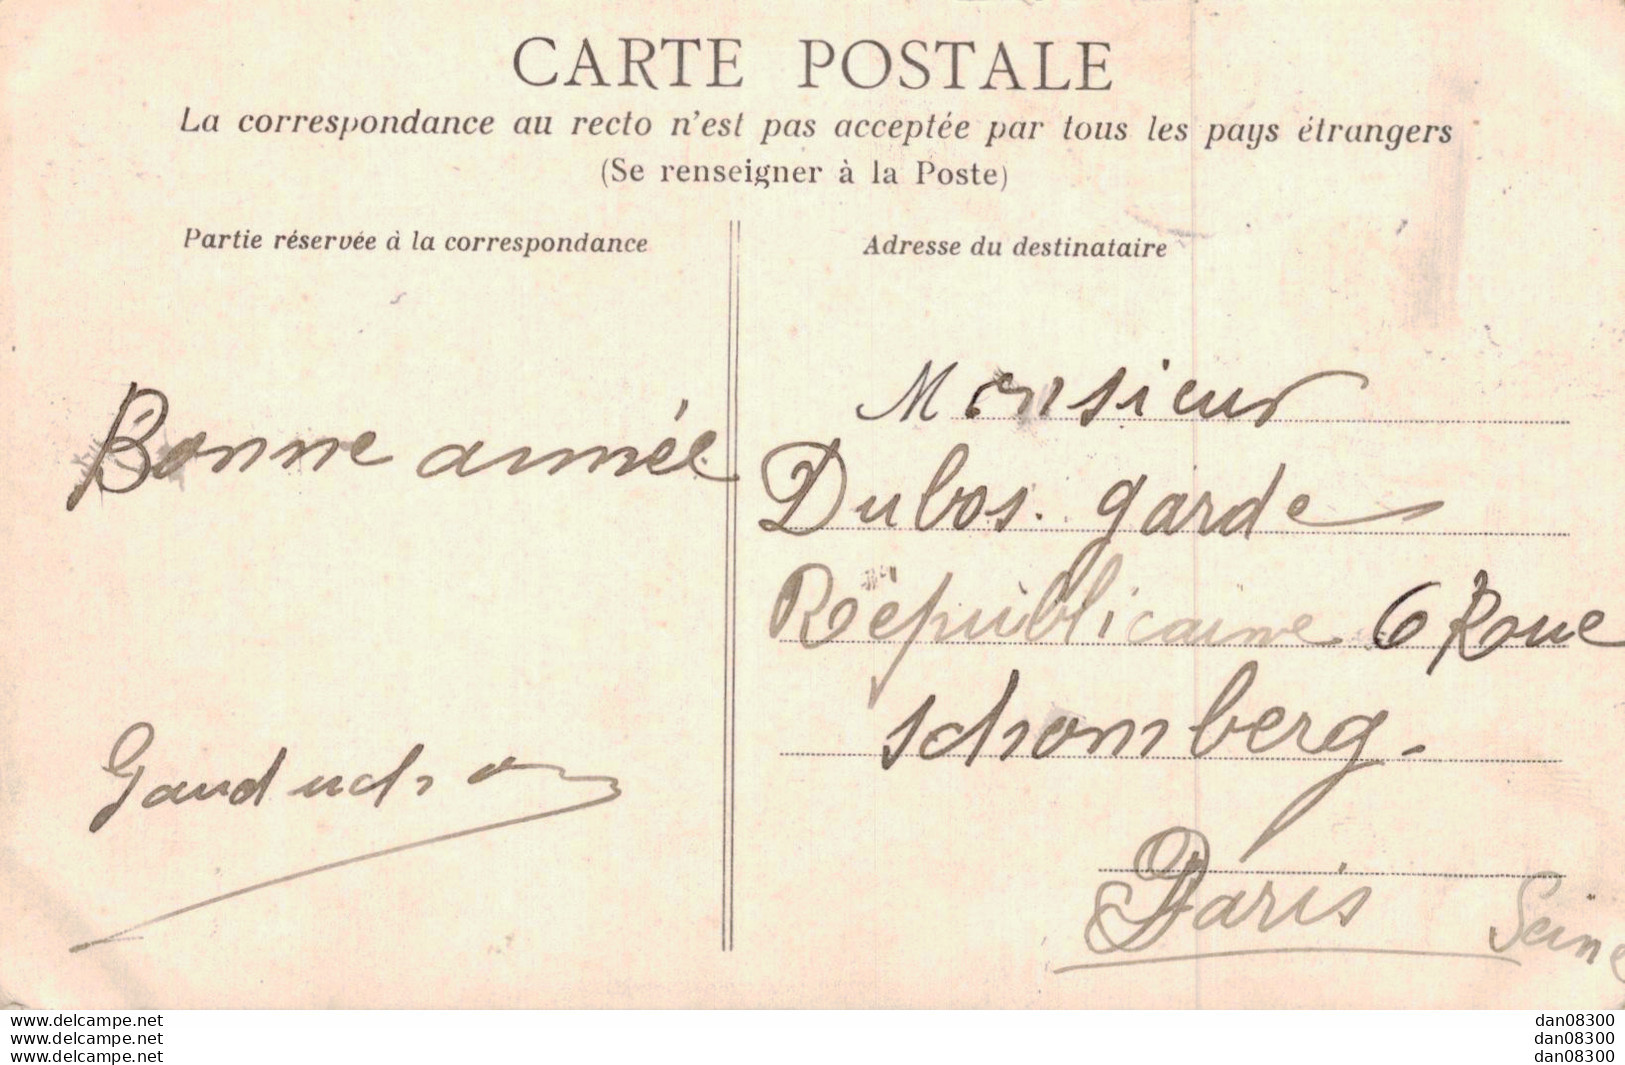 CARTE POSTALE
La correspondance au recto n'est pas acceptée par tous les pays étrangers
(Se renseigner à la Poste)
Partie réservée à la correspondance
Adresse du destinataire
Bonne année
Monsieur
Dubos. garde
Républicaine 6 Rue
schomberg.
Paris Seine
www.delcampe.net
www.delcampe.net
www.delcampe.net
dan08300
dan08300
dan08300